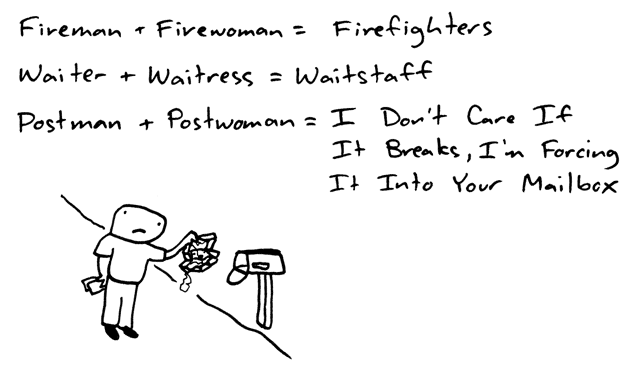 Fireman + Firewoman = Firefighters
Waiter + Waitress = Waitstaff
Postman + Postwoman = I Don't Care If
It Breaks, I'm Forcing
It Into Your Mailbox